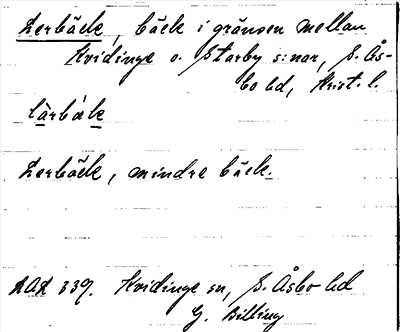 Lerbäck, bäck i gränsen mellan
Kvidinge o. Starby s:nar, S. Ås-
bo hd, Krist. l.
làrbák
Lerbäck, mindre bäck.
LAL 339. Kvidinge sn, S. Åsbo hd
G. Billing